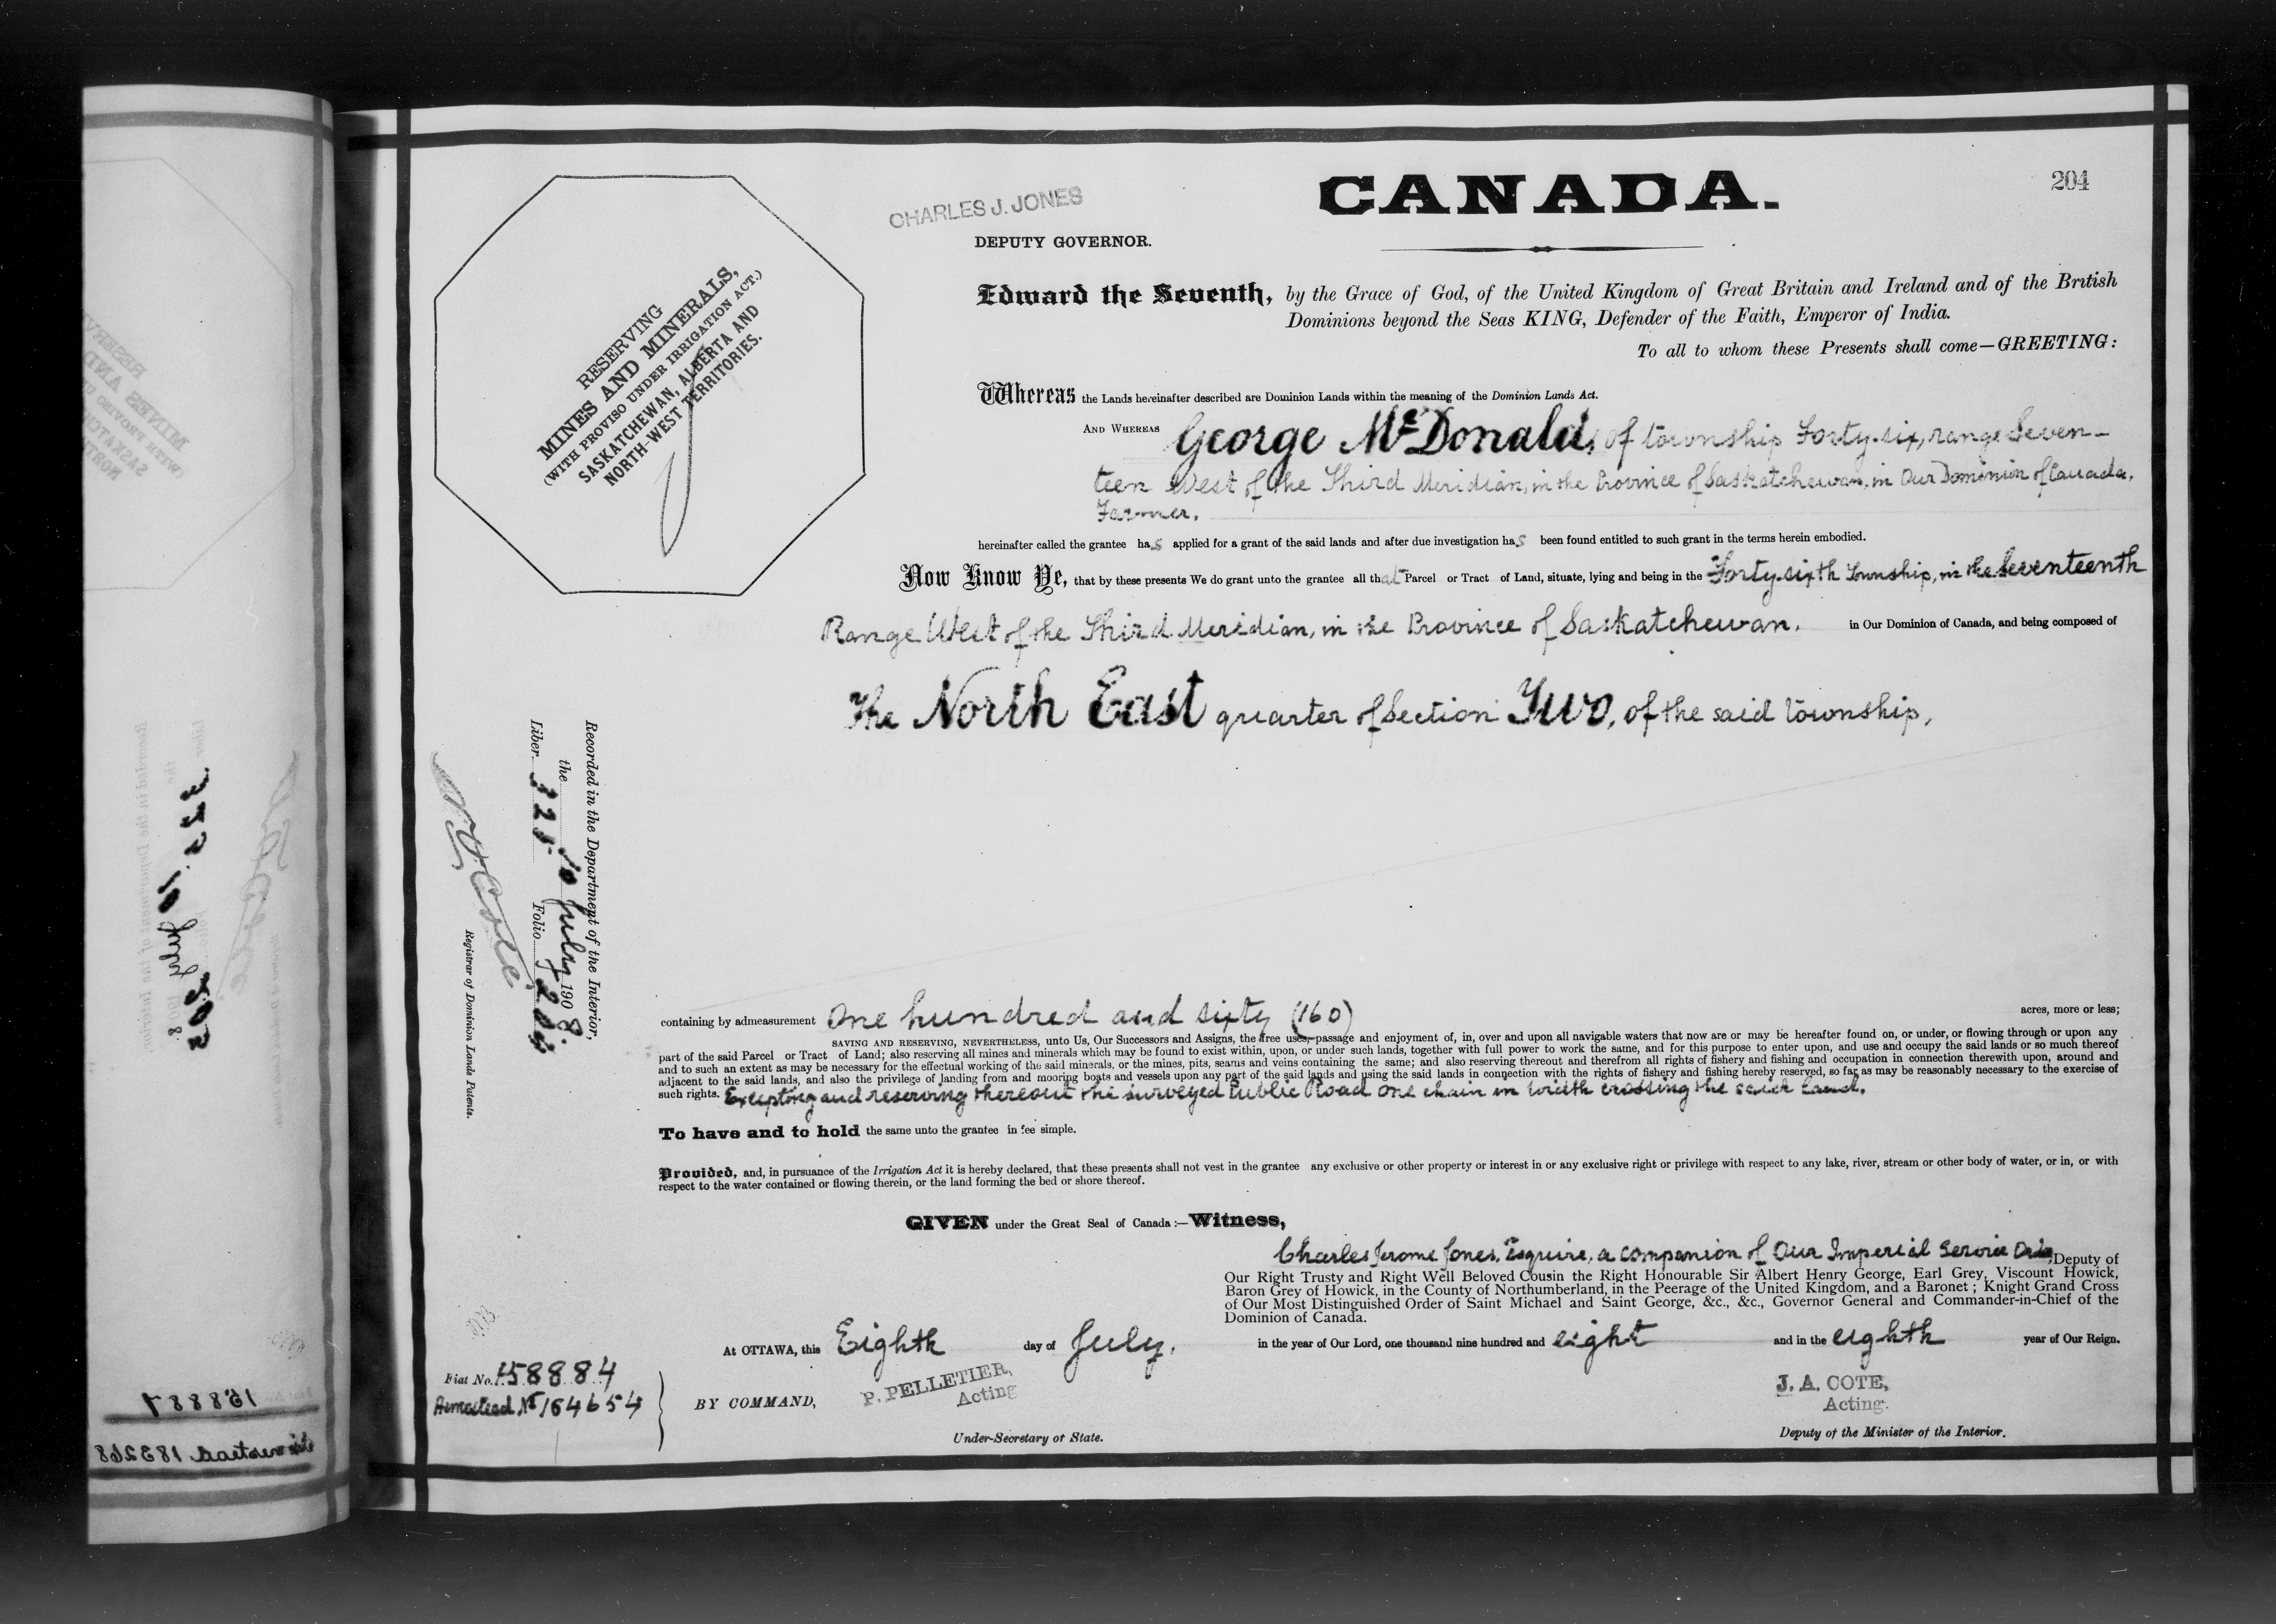 204
CANADA.
CHARLES J. JONES
DEPUTY GOVERNOR.
RESERVING
MINES AND MINERALS,
(WITH PROVISO UNDER IRRIGATION ACT.)
SASKATCHEWAN, ALBERTA AND
NORTH-WEST TERRITORIES.
Edward the Seventh, by the Grace of God, of the United Kingdom of Great Britain and Ireland and of the British
Dominions beyond the Seas KING, Defender of the Faith, Emperor of India.
To all to whom these Presents shall come—GREETING:
Whereas the Lands hereinafter described are Dominion Lands within the meaning of the Dominion Lands Act.
AND WHEREAS George McDonald, of township Forty-six, range Seven-
teen West of the Third Meridian, in the Province of Saskatchewan, in Our Dominion of Canada,
Farmer.
hereinafter called the grantee has applied for a grant of the said lands and after due investigation has been found entitled to such grant in the terms herein embodied.
Now Know Ye, that by these presents We do grant unto the grantee all that Parcel or Tract of Land, situate, lying and being in the Forty-sixth Township, in the Seventeenth
Range West of the Third Meridian, in the Province of Saskatchewan. in Our Dominion of Canada, and being composed of
The North East quarter of Section Two, of the said township,
Recorded in the Department of the Interior,
the 10 July 1908
Liber 325 Folio
Registrar of Dominion Lands Patents.
containing by admeasurement One hundred and sixty (160) acres, more or less;
SAVING AND RESERVING, NEVERTHELESS, unto Us, Our Successors and Assigns, the free uses, passage and enjoyment of, in, over and upon all navigable waters that now are or may be hereafter found on, or under, or flowing through or upon any
part of the said Parcel or Tract of Land; also reserving all mines and minerals which may be found to exist within, upon, or under such lands, together with full power to work the same, and for this purpose to enter upon, and use and occupy the said lands or so much thereof
and to such an extent as may be necessary for the effectual working of the said minerals, or the mines, pits, seams and veins containing the same; and also reserving thereout and therefrom all rights of fishery and fishing and occupation in connection therewith upon, around and
adjacent to the said lands, and also the privilege of landing from and mooring boats and vessels upon any part of the said lands and using the said lands in connection with the rights of fishery and fishing hereby reserved, so far as may be reasonably necessary to the exercise of
such rights. Excepting and reserving thereout the surveyed Public Road one chain in width crossing the said Land.
To have and to hold the same unto the grantee in fee simple.
Provided, and, in pursuance of the Irrigation Act it is hereby declared, that these presents shall not vest in the grantee any exclusive or other property or interest in or any exclusive right or privilege with respect to any lake, river, stream or other body of water, or in, or with
respect to the water contained or flowing therein, or the land forming the bed or shore thereof.
GIVEN under the Great Seal of Canada:—Witness,
Charles Jerome Jones, Esquire, a companion of Our Imperial Service Order, Deputy of
Our Right Trusty and Right Well Beloved Cousin the Right Honourable Sir Albert Henry George, Earl Grey, Viscount Howick,
Baron Grey of Howick, in the County of Northumberland, in the Peerage of the United Kingdom, and a Baronet; Knight Grand Cross
of Our Most Distinguished Order of Saint Michael and Saint George, &c., &c., Governor General and Commander-in-Chief of the
Dominion of Canada.
At OTTAWA, this Eighth day of July, in the year of Our Lord, one thousand nine hundred and eight and in the eighth year of Our Reign.
Fiat No. 158884
Homestead No 164654
BY COMMAND,
P. PELLETIER,
Acting
Under-Secretary of State.
J. A. COTE,
Acting
Deputy of the Minister of the Interior.